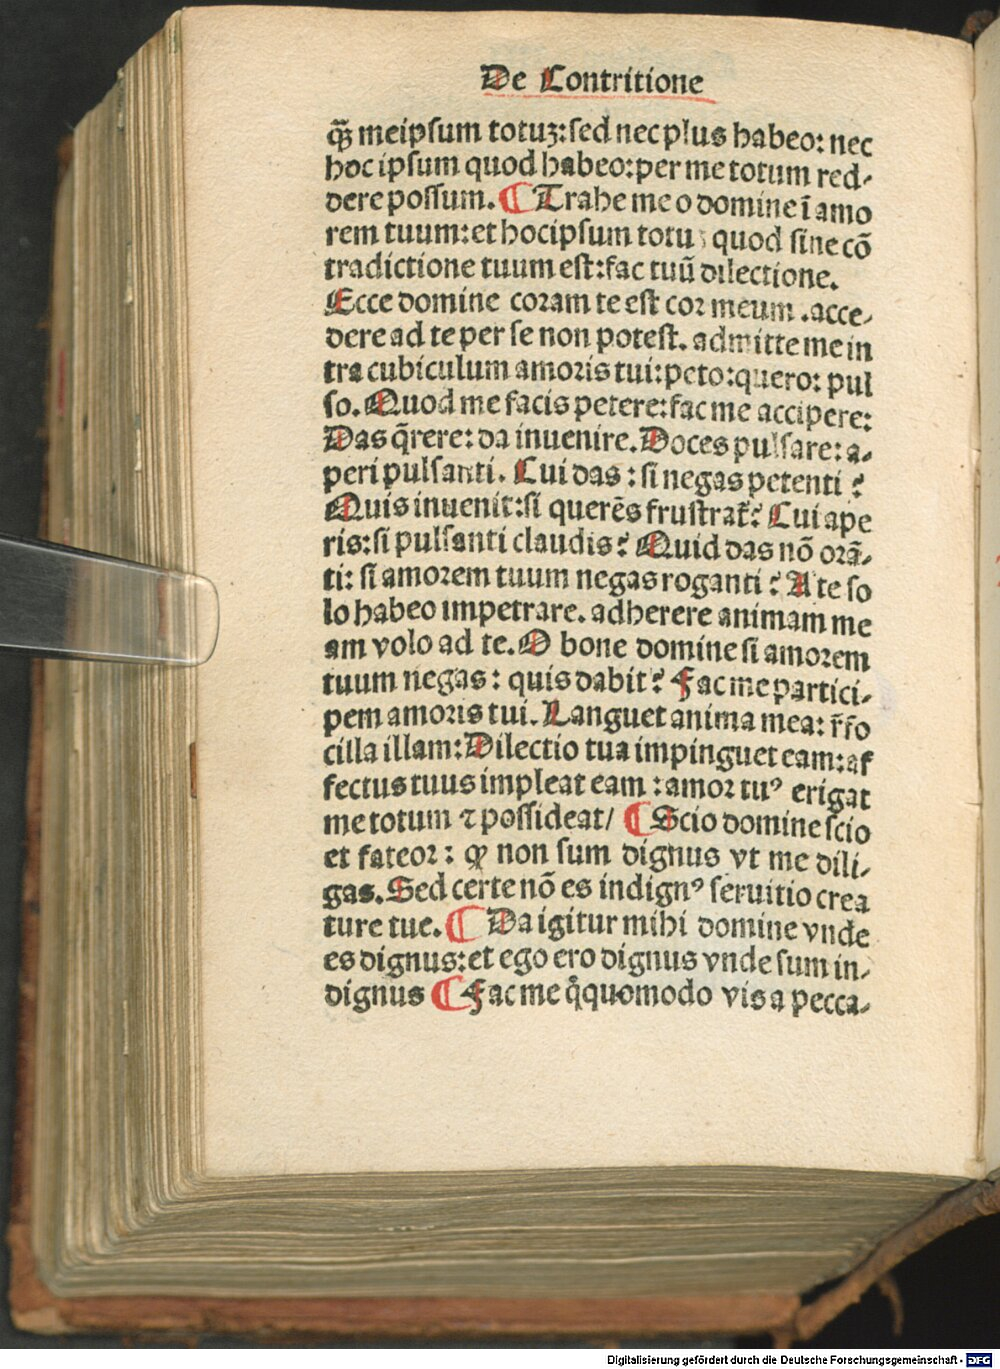 De Contritione
qȝ̄ meipsum totuʒ: sed nec plus habeo: nec
hoc ipsum quod habeo: per me totum red⸗
dere possum. ¶ Trahe me o domine ī amo
rem tuum: et hoc ipsum totu quod sine cō
tradictione tuum est: fac tuū dilectione.
Ecce domine coram te est cor meum . acce⸗
dere ad te per se non potest. admitte me in
tra cubiculum amoris tui: peto: quero: pul
so. Quod me facis petere: fac me accipere:
Das q̄rere: da inuenire. Doces pulsare: a⸗
peri pulsanti. Cui das : si negas petenti ?
Quis inuenit: si querēs frustrat̄? Cui ape
ris: si pulsanti claudis? Quid das nō orā⸗
ti: si amorem tuum negas roganti ? A te so
lo habeo impetrare. adherere animam me
am volo ad te. O bone domine si amorem
tuum negas : quis dabit? Fac me partici⸗
pem amoris tui. Languet anima mea: r̄fo
cilla illam: Dilectio tua impinguet eam: af
fectus tuus impleat eam : amor tuꝰ erigat
me totum ⁊ possideat/ ¶ Scio domine scio
et fateor : ꝙ non sum dignus vt me dili⸗
gas. Sed certe nō es indignꝰ seruitio crea
ture tue. ¶ Da igitur mihi domine vnde
es dignus: et ego ero dignus vnde sum in⸗
dignus ¶ Fac me q̊quomodo vis a pecca⸗
Digitalisierung gefördert durch die Deutsche Forschungsgemeinschaft - DFG